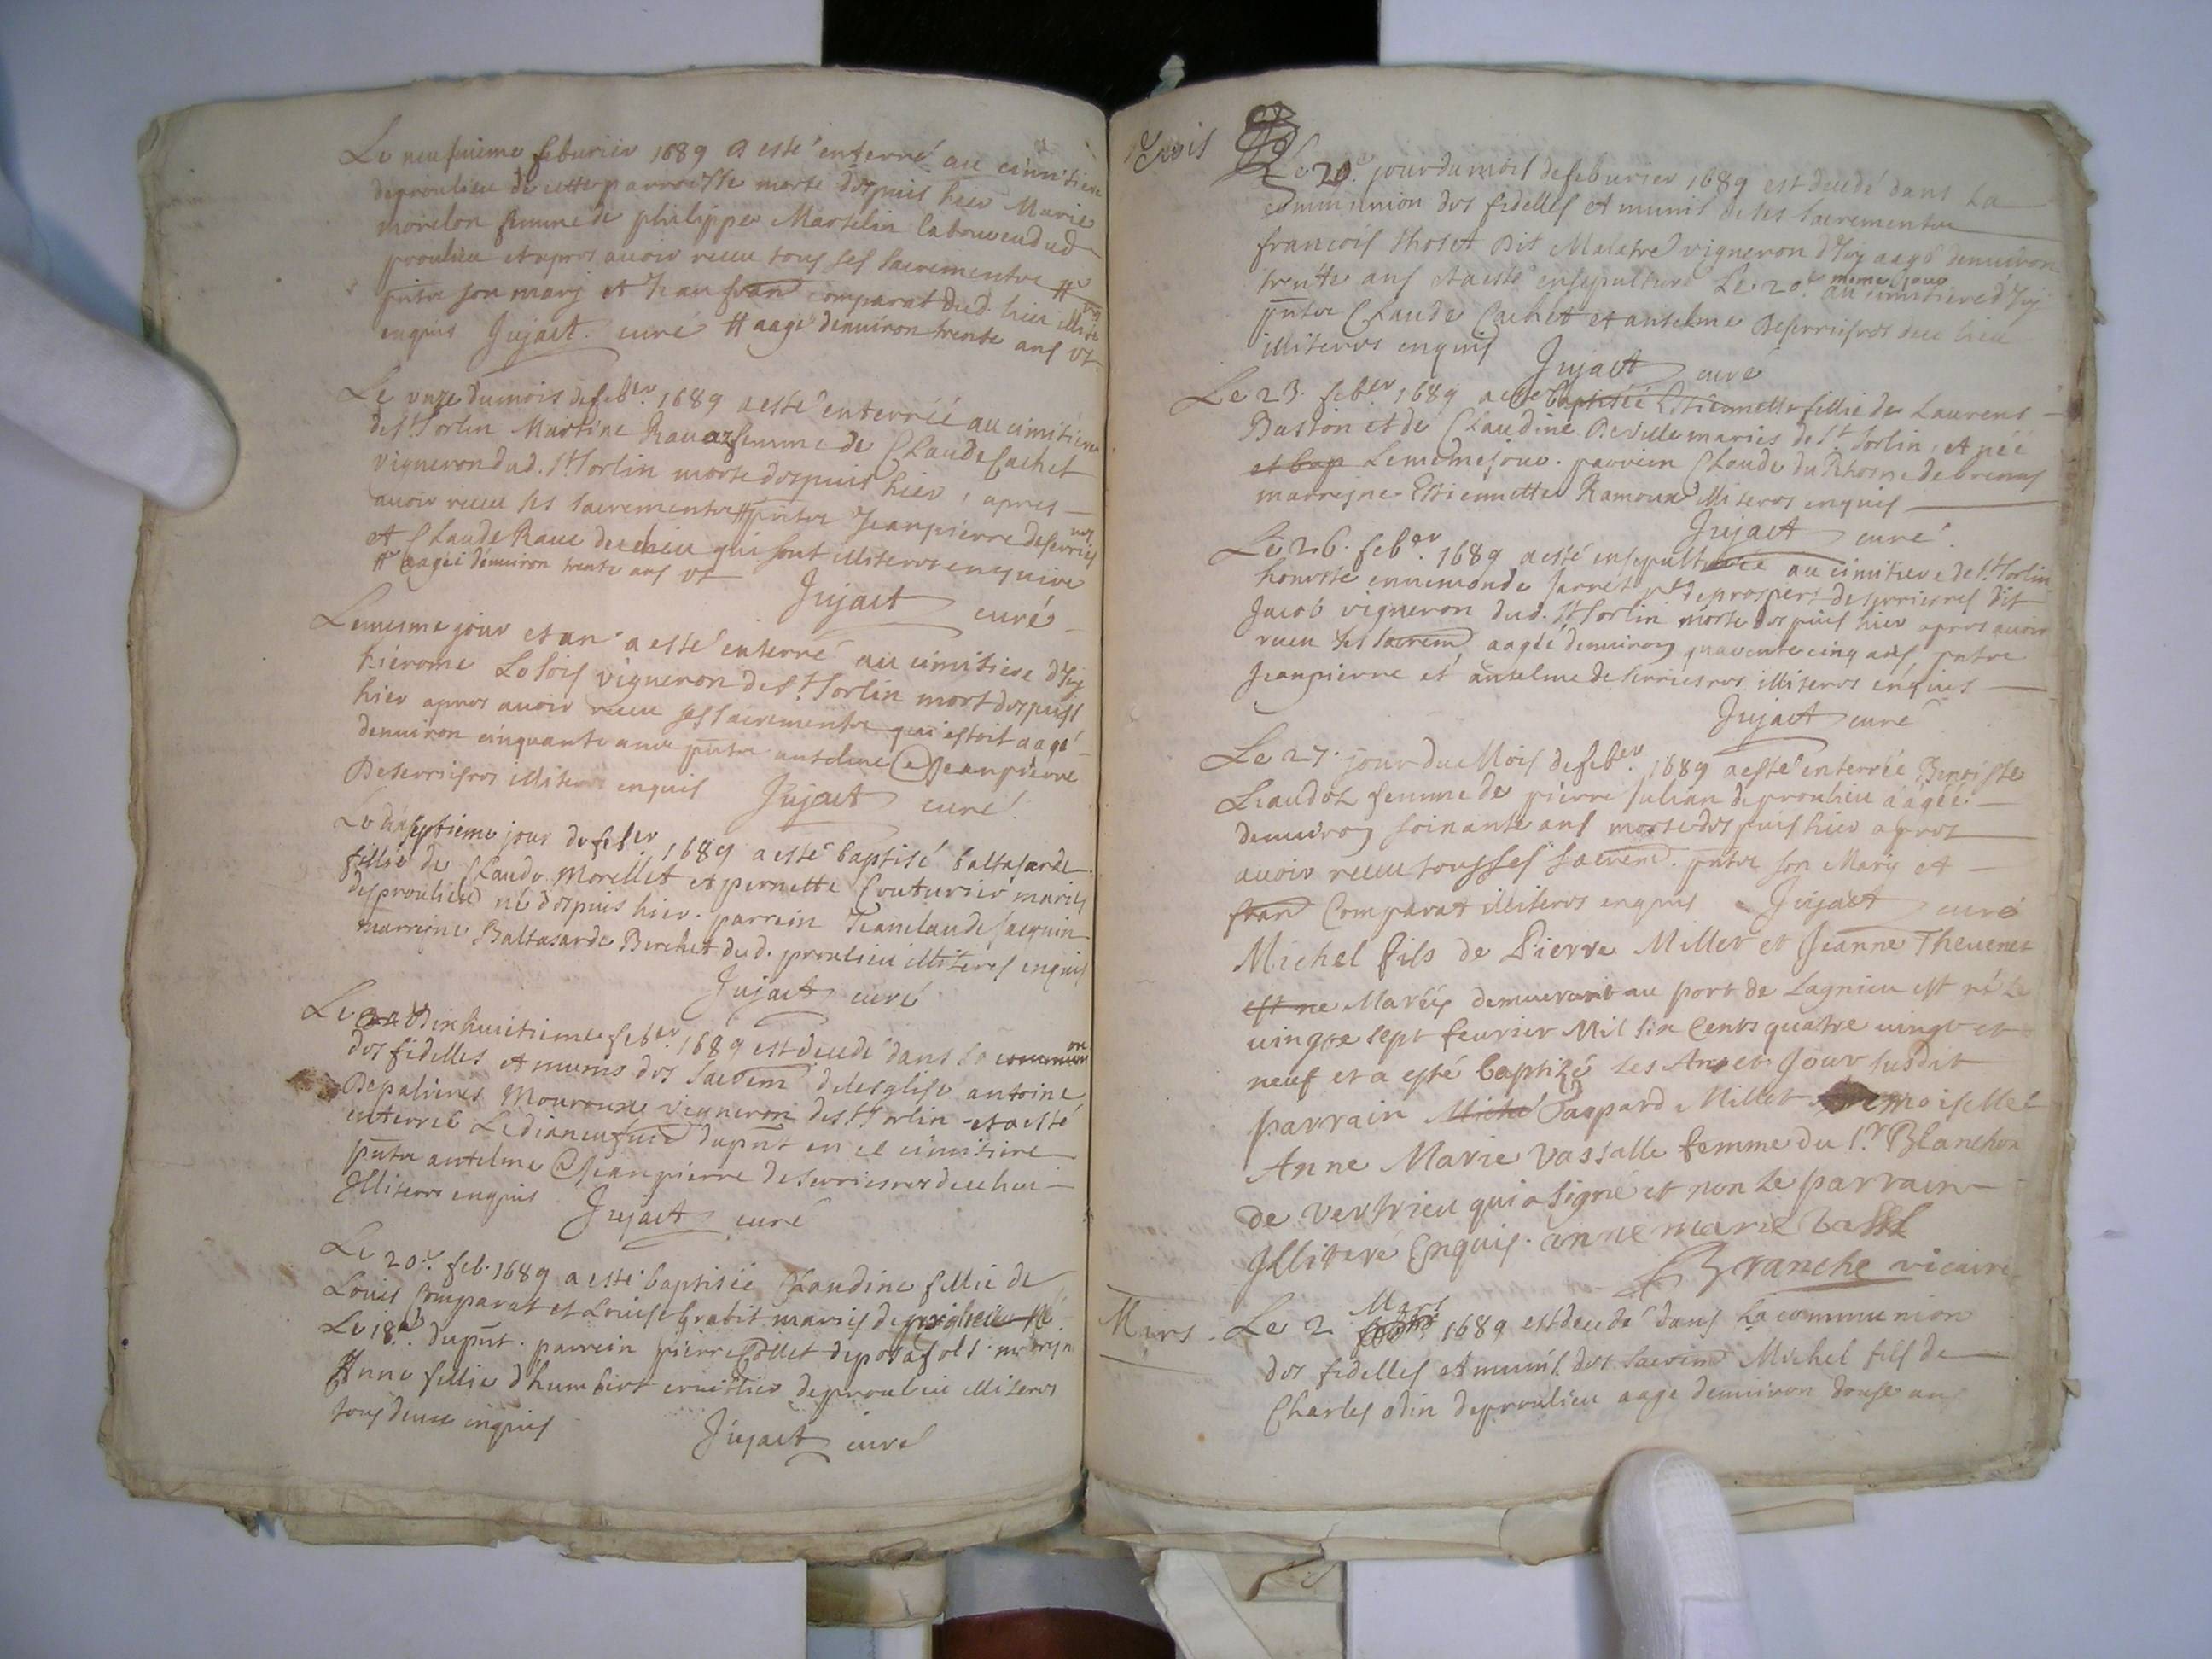 Le neufuieme feburier 1689 a esté enterré au cimitiere
de proulieu de cette parroisse morte despuis hier Marie
morelon femme de philippe Marselin laboureur dud
proulieu et apres avoir receu tous ses sacrementz #
pntz son mary et Jean fran comparat dud. lieu illiteres
enquis Jujact curé # aagé denuiron trente ans
Le unze du mois de feber. 1689 a esté enterréé au cimitiere
de St. Sorlin Martine Rauaz femme de Claude Cachet
vigneron dud. St. Sorlin morte despuis hier, apres
auoir receu ses sacrementz # pntz Jeanpierre deserrieres
et Claude Raue de ce lieu qui sont illiteres enquis
# aagéé denuiron trente ans
Jujact curé
Le mesme jour et an a esté enterré au cimitiere d'Isy
hiérome Losois vigneron de St. Sorlin mort despuis
hier apres auoir receu ses sacrementz qui estoit aagé
denuiron cinquante ans pntz antelme & Jeanpierre
Deserrieres illiteres enquis Jujact curé
Le dixseptieme jour de feber 1689 a esté baptisé baltasarde
fillie de Claude Morellet et pernette Couturier mariés
de proulieu né despuis hier. parrein Jeanclaude Jacquin
marreine Baltasarde Berchet dud. proulieu illiteres enquis
Jujact curé
Le dixhuitieme feber. 1689 est decedé dans la communion
des fidelles et munis des sacrem de lesglise antoine
Depalines Mouroux vigneron de St. Sorlin et a esté
enterré Le dixneufuie du pnt en ce cimitiere
pntz antelme & Jeanpierre deserrieres de ce lieu
Illiteres enquis Jujact curé
Le 20e. feb. 1689 a esté baptiséé Claudine fillie de
Louis Comparat et Louise Grabit mariés de proulieu né
Le 18e. du pnt. parrein pierre Collet de posafols. marreyne
Anne fillie d'humbert cruitlier de proulieu illiteres
tous deux enquis Jujact curé
Le 20e jour du mois de feburier 1689 est decedé dans La
communion des fidelles et munis de ses sacrementz
francois tholet Dit Malatre vigneron d'Isy aagé denuiron
trente ans et a esté ensepulturé Le 20e meme jour au cimitiere d'Isy
pntz Claude Cachet et antelme Deserrieres de ce lieu
illiteres enquis Jujact curé
Le 23. feber 1689 a esté baptiséé Estiennette fillie de Laurens
Buston et de Claudine Deville mariés de St. Sorlin, et néé
et bap Le meme jour. parrein Claude du Rhosne de brenas
marreyne Estiennette Ramoux illiteres enquis
Jujact curé.
Le 26. feber. 1689 a esté ensepulturéé au cimitiere de St. Sorlin
honneste ennemonde Jarret ve de prosper deserrieres dit
Jacob vigneron dud. St. Sorlin morte despuis hier apres auoir
receu ses sacrem aagéé denuiron quarente cinq ans, pntz
Jeanpierre et antelme deserrieres illiteres enquis
Jujact curé
Le 27. jour du Mois de feber. 1689 a esté enterréé Benoiste
Leaudoz femme de pierre Julian de proulieu aagéé
denuiron soixante ans morte despuis hier apres
auoir receu tous ses sacrem. pntz son Mary et
fran Comparat illiteres enquis Jujact curé
Michel fils de Pierre Millet et Jeanne Theuenet
est ne Mariés demeurant au port de Lagnieu est né Le
uingte sept feurier Mil six Cents quatre uingt et
neuf et a esté baptizé Les An et Jour susdit
parrain Miche Gaspard Millet demoiselle
Anne Marie Vassalle femme du Sr. Blanchon
de Vertrieu qui a signé et non Le parrain
Illiteré Enquis. anne marie Vassal
Branche vicaire
Mars. Le 2. Mars 1689 est decedé dans La communion
des fidelles et munis des sacrem Michel fils de
Charles odin de proulieu aage denuiron douse ans